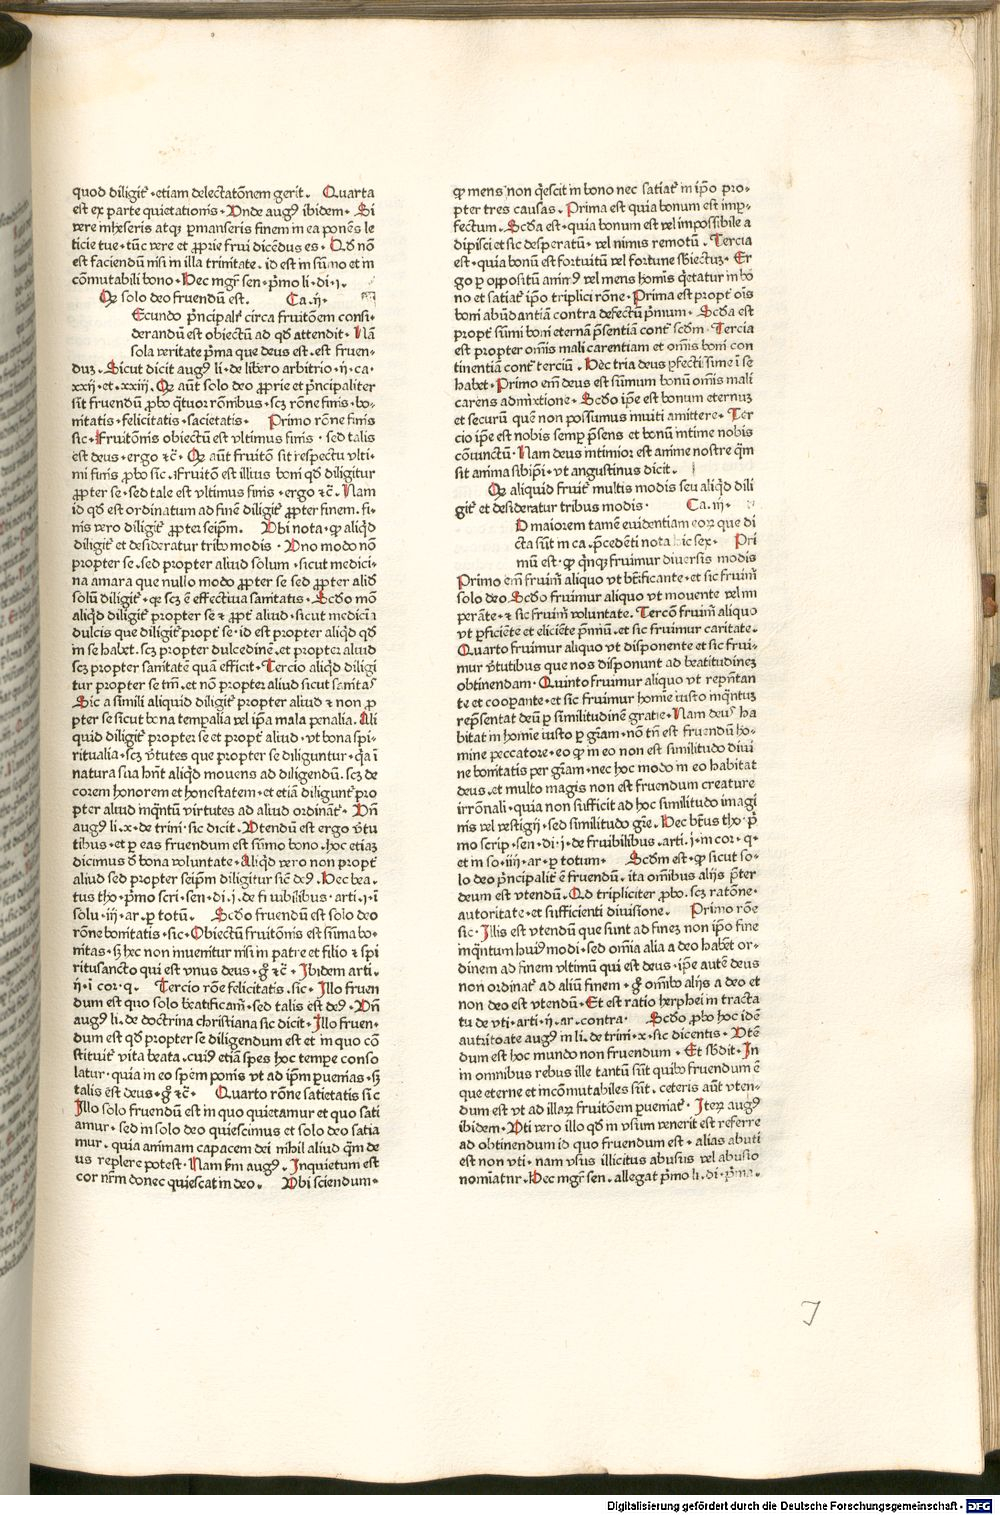 quod diligit᷑ · etiam delectatõnem gerit . Quarta
est ex parte quietationis · Vnde augꝰ ibidem · Si
vere inheseris atqꝫ ꝑmanseris finem in ea ponẽs le
ticie tue · tũc vere et ꝓprie frui dicẽdus es · Qd̃ nõ
est faciendũ nisi in illa trinitate . id est in sũmo et in
cõmutabili bono · Hec mgr̃ sen · p̃mo li · di · i ·
Qꝫ solo deo fruendũ est . Ca . ij ·
Ecundo p̃ncipalit᷑ circa fruitõem consi-
derandũ est obiectũ ad qd̃ attendit · Nã
sola veritate p̃ma que deus est . est fruen-
duꝫ · Sicut dicit augꝰ li · de libero arbitrio · ij · ca ·
xxij · et · xxiij . Qꝫ aũt solo deo ꝓprie et p̃ncipaliter
sit fruendũ ꝓbo q̃tuor rõnibus · scꝫ rõne finis · bo-
nitatis · felicitatis · sacietatis · Primo rõne finis
sic · Fruitõnis obiectũ est vltimus finis · sed talis
est deus · ergo ⁊c̃ · Qꝫ aũt fruitõ sit respectu vlti-
mi finis ꝓbo sic . Fruitõ est illius boni qd̃ diligitur
ꝓpter se · sed tale est vltimus finis · ergo ⁊c̃ . Nam
id qd̃ est ordinatum ad finẽ diligit᷑ ꝓpter finem . fi-
nis vero diligit᷑ ꝓpter seip̃m . Vbi nota · ꝙ aliq̃d
diligit᷑ et desiderat᷑ tribꝰ modis · Vno modo nõ
propter se · sed propter aliud solum · sicut medici-
na amara que nullo modo ꝓpter se sed ꝓpter alid̃
solũ diligit᷑ · qꝛ scꝫ ẽ effectiua sanitatis · Scd̃o mõ
aliq̃d diligit᷑ propter se ⁊ ꝓpt᷑ aliud · sicut medicĩa
dulcis que diligit᷑ propt᷑ se · id est propter aliq̃d qd̃
in se habet . scꝫ propter dulcedinẽ . et propter aliud
scꝫ propter sanitatẽ quã efficit · Tercio aliq̃d diligi
tur propter se tm̃ . et nõ propter aliud sicut sanitas
Sic a simili aliquid diligit᷑ propter aliud ⁊ non ꝓ
pter se sicut bona temꝑalia vel ip̃a mala penalia . Ali
quid diligit᷑ propter se et propt᷑ aliud · vt bona spi-
ritualia · scꝫ v̾tutes que propter se diliguntur · q̃a ĩ
natura sua hñt aliq̃d mouens ad diligendũ . scꝫ de
corem honorem et honestatem · et etiã diligunt᷑ pro
pter aliud inq̃ntũ virtutes ad aliud ordinãt᷑ · Vñ
augꝰ li · x · de trini · sic dicit · Vtendũ est ergo v̾tu
tibus · et ꝑ eas fruendum est sũmo bono . hoc etiaꝫ
dicimus d̃ bona voluntate · Aliq̃d vero non propt᷑
aliud sed propter seip̃m diligitur sicñ deꝰ . Hec bea-
tus tho · p̃mo scri · sen · di · i · de fruibilibus · arti · i · ĩ
solu · iij · ar · ꝑ totũ · Scd̃o fruendũ est solo deo
rõne bonitatis · sic · Obiectũ fruitõnis est sũma bo-
nitas · sꝫ hec non inuenitur nisi in patre et filio ⁊ spi
ritusancto qui est vnus deus · ẜ ⁊c̃ · Ibidem arti ·
ij · ĩ cor · q · Tercio rõe felicitatis · sic · Illo fruen
dum est quo solo beatificam̃ · sed talis est deꝰ · Vñ
augꝰ li · de doctrina christiana sic dicit · Illo fruen-
dum est qd̃ propter se diligendum est et in quo cõ
stituit᷑ vita beata . cuiꝰ etiã spes hoc tempe conso
latur · quia in eo spem ponis vt ad ip̃m ꝑuenias · sꝫ
talis est deus · ẜ ⁊c̃ · Quarto rõne satietatis sic
Illo solo fruendũ est in quo quietamur et quo sati
amur · sed in solo deo quiescimus et solo deo satia
mur · quia animam capacem dei nihil aliud q̃m de
us replere potest · Nam ẜm augꝰ · Inquietum est
cor nr̃m donec quiescat in deo . Vbi sciendum ·
ꝙ mens non q̃escit in bono nec satiat᷑ in ip̃o pro-
pter tres causas . Prima est quia bonum est imꝑ-
fectum . Scd̃a est · quia bonum est vel impossibile a
dipisci et sic desperatũ · vel nimis remotũ . Tercia
est · quia bonũ est fortuitũ vel fortune sb̾iectuꝫ · Er
go ꝑ oppositũ animꝰ vel mens homis q̃etatur in bo
no et satiat᷑ ip̃o triplici rõne · Prima est propt᷑ oĩs
boni abũdantiã contra defectũ p̃mum · Scd̃a est
propt᷑ sũmi boni eternã p̃sentiã cont᷑ scd̃m · Tercia
est propter omĩs mali carentiam et omĩs boni con
tinentiã cont᷑ terciũ . Hec tria deus ꝑfectissime ĩ se
habet · Primo em̃ deus est sũmum bonũ omĩs mali
carens admixtione · Scd̃o ip̃e est bonum eternuꝫ
et securũ quẽ non possumus inuiti amittere · Ter
cio ip̃e est nobis semꝑ p̃sens et bonũ intime nobis
cõiunctũ · Nam deus intimior est anime nostre q̃m
sit anima sibiip̃i · vt augustinus dicit .
Qꝫ aliquid fruit᷑ multis modis seu aliq̃d dili
git᷑ et desideratur tribus modis · Ca . iij ·
D maiorem tamẽ euidentiam eoꝝ que di
cta sũt in ca . p̃cedẽti nota hic sex · Pri
mũ est · ꝙ q̃nqꝫ fruimur diuersis modis
Primo em̃ fruim̃ aliquo vt bt̃ificante · et sic fruim̃
solo deo · Scd̃o fruimur aliquo vt mouente vel im
perãte · ⁊ sic fruim̃ voluntate . Tercõ fruim̃ aliquo
vt ꝑficiẽte et eliciẽte p̃miũ . et sic fruimur caritate ·
Quarto fruimur aliquo vt disponente et sic frui-
mur v̾tutibus que nos disponunt ad beatitudineꝫ
obtinendam · Quinto fruimur aliquo vt rep̃ntan
te et cooꝑante · et sic fruimur homie iusto inq̃ntuꝫ
rep̃sentat deũ ꝑ similitudinẽ gratie · Nam deus ha
bitat in homie iusto ꝑ gr̃am · nõ tñ est fruendũ ho-
mine peccatore · eo ꝙ in eo non est similitudo diui
ne bonitatis per gr̃am · nec hoc modo in eo habitat
deus . et multo magis non est fruendum creature
irrõnali · quia non sufficit ad hoc similitudo imagi
nis vel vestigij · sed similitudo gr̃e . Hec bt̃us tho · p̃
mo scrip · sen · di · i · de fruibilibus · arti · i · in cor · q ·
et in so · iij · ar · ꝑ totum · Scd̃m est · ꝙ sicut so-
lo deo p̃ncipalit᷑ ẽ fruendũ . ita omĩbus alijs p̃ter
deum est vtendũ . Qd̃ tripliciter ꝓbo . scꝫ ratõne ·
autoritate · et sufficienti diuisione . Primo rõe
sic · Illis est vtendũ que sunt ad fineꝫ non ip̃o fine
inq̃ntum huiꝰmodi · sed omĩa alia a deo habẽt or-
dinem ad finem vltimũ qui est deus · ip̃e autẽ deus
non ordinat᷑ ad aliũ finem · ẜ omĩbꝰ alijs a deo et
non deo est vtendũ · Et est ratio herphei in tracta
tu de vti · arti · ij · ar · contra · Scd̃o ꝓbo hoc idẽ
autritoate augꝰ in li · de trini · x · sic dicentis · Vtẽ
dum est hoc mundo non fruendum · Et sb̾dit · In
in omnibus rebus ille tantũ sũt quibꝰ fruendum ẽ
que eterne et incõmutabiles sũt . ceteris aũt vten-
dum est vt ad illaꝝ fruitõem ꝑueniat᷑ · Iteꝝ augꝰ
ibidem · Vti vero illo qd̃ in vsum venerit est referre
ad obtinendum id quo fruendum est · alias abuti
est non vti · nam vsus illicitus abusus vel abusio
nominatur · Hec mgr̃ sen . allegat p̃mo li · di · p̃ma ·
7
Digitalisierung gefördert durch die Deutsche Forschungsgemeinschaft - DFG